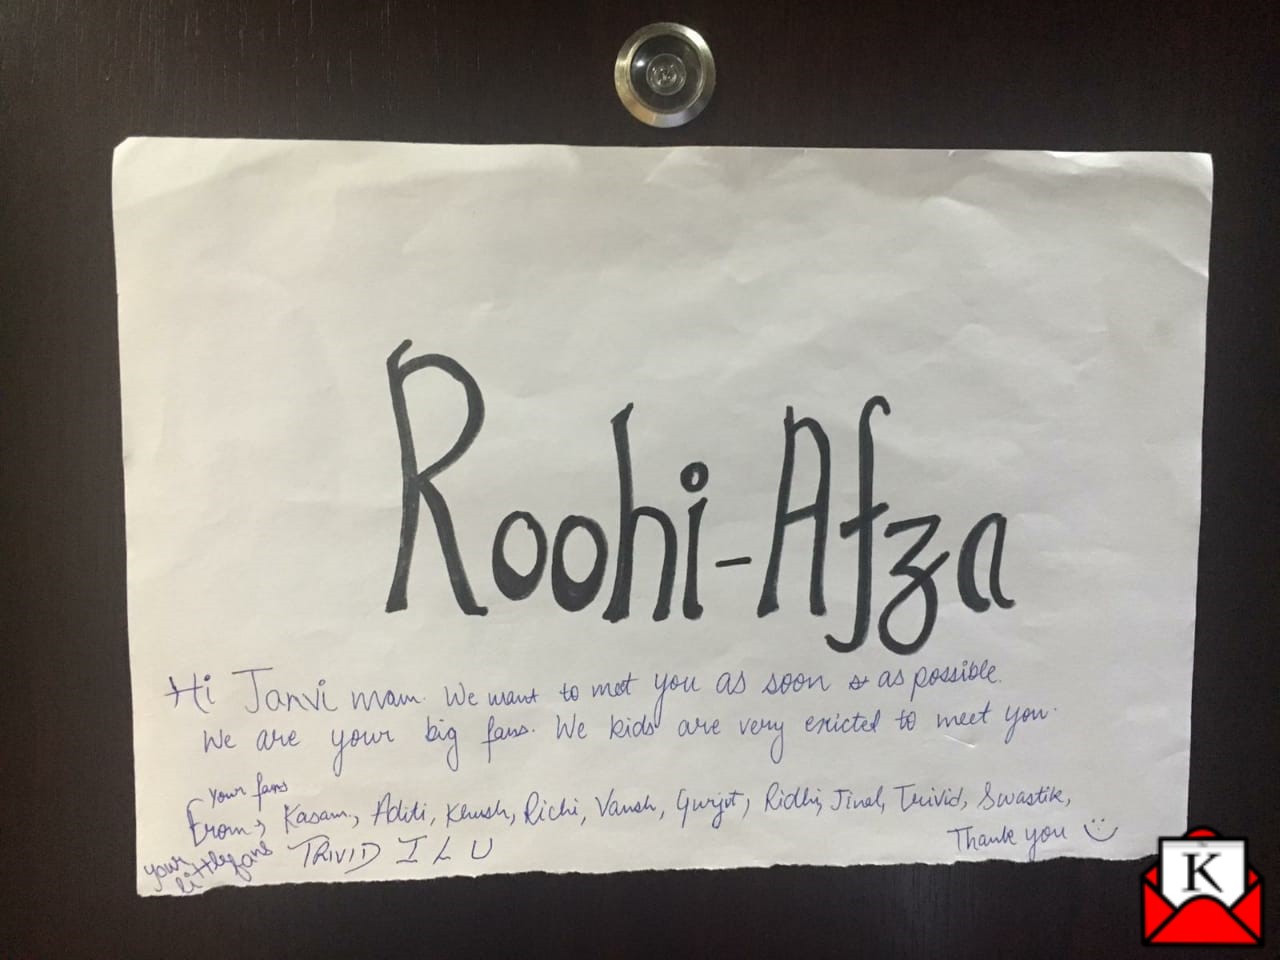 Roohi-Afza
Hi Janvi mam. We want to meet you as soon as possible.
We are your big fans. We kids are very exicted to meet you.
Your fans
From → Kasam, Aditi, Khush, Richi, Vansh, Gurjot, Ridhi, Jinal, Trivid, Swastik,
Thank you
your little fans
TRIVID I L U
K